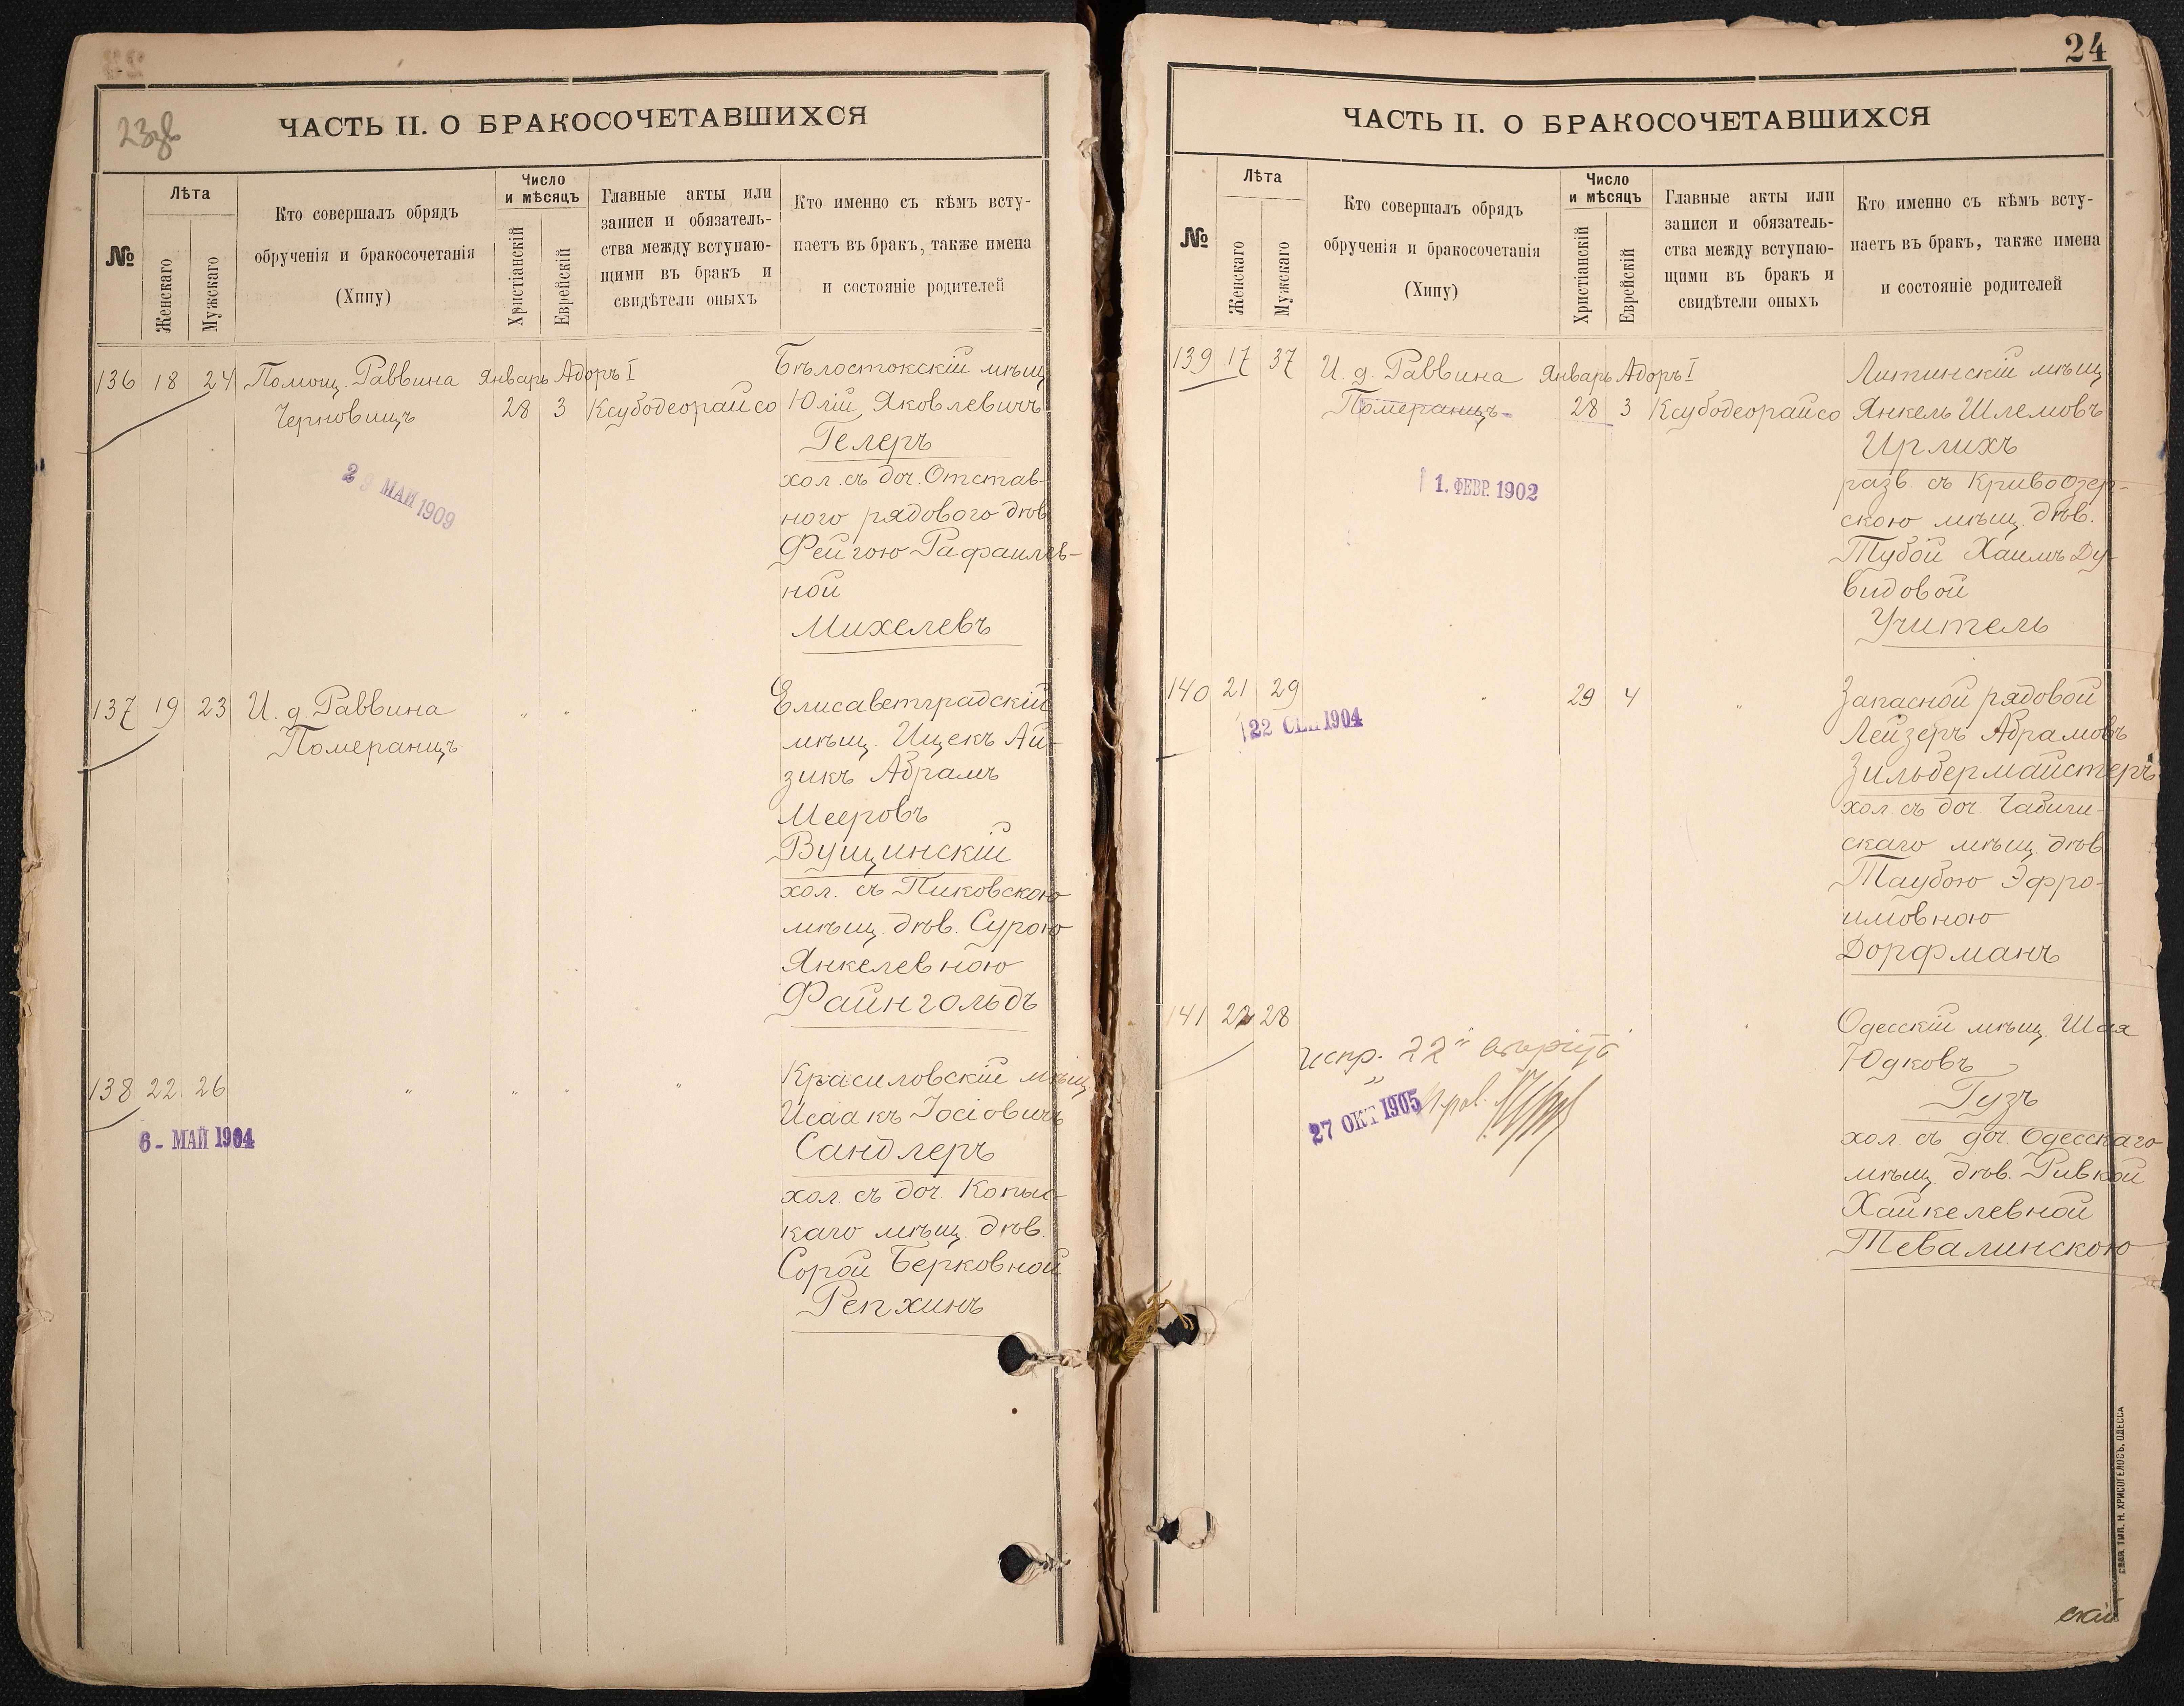 23об
ЧАСТЬ II. О БРАКОСОЧЕТАВШИХСЯ
№
Лѣта
Женскаго
Мужскаго
Кто совершалъ обрядъ
обрученія и бракосочетанія
(Хипу)
Число
и мѣсяцъ
Христіанскій
Еврейскій
Главные акты или
записи и обязатель-
ства между вступаю-
щими въ бракъ и
свидѣтели оныхъ
Кто именно съ кѣмъ всту-
паетъ въ бракъ, также имена
и состояніе родителей
136 18 24 Помощ. Раввина Январь Адоръ I Бѣлостокскій мѣщ
Черновицъ 28 3 Ксубодеорайсо Юлій Яковлевичъ
Гелеръ
хол. съ доч. Отстав-
29 МАЙ 1909
ного рядового дѣв
Фейгою Рафаилев-
ной
Михелевъ
137 19 23 И. д. Раввина " " " Елисаветградскій
Померанцъ
мѣщ. Ицекъ Ай-
зикъ Абрамъ
Мееровъ
Вущинскій
хол. съ Пиковскою
мѣщ. дѣв. Сурою
Янкелевною
Файнгольдъ
138 22 26 " " " " Красиловскій мѣщ
6 - МАЙ 1904
Исаакъ Іосіовичъ
Сандлеръ
хол. съ доч. Копыс-
каго мѣщ. дѣв.
Сорой Берковной
Репхинъ
24
ЧАСТЬ II. О БРАКОСОЧЕТАВШИХСЯ
№
Лѣта
Женскаго
Мужскаго
Кто совершалъ обрядъ
обрученія и бракосочетанія
(Хипу)
Число
и мѣсяцъ
Христіанскій
Еврейскій
Главные акты или
записи и обязатель-
ства между вступаю-
щими въ бракъ и
свидѣтели оныхъ
Кто именно съ кѣмъ всту-
паетъ въ бракъ, также имена
и состояніе родителей
139 17 37 И. д. Раввина Январь Адоръ I Литинскій мѣщ
Померанцъ 28 3 Ксубодеорайсо Янкель Шлемовъ
Ирлихъ
1. ФЕВР. 1902
разв. съ Кривоозер-
скою мѣщ. дѣв.
Тубой Хаимъ Ду-
видовой
Учитель
140 21 29 " 29 4 " Запасной рядовой
22 СЕН 1904
Лейзеръ Абрамовъ
Зильбермайстеръ
хол. съ доч.
скаго мѣщ. дѣв
Таубою Эфро-
имовною
Дорфманъ
141 22 28 " Одесскій мѣщ. Шая
испр. 22"
Юдковъ
27 ОКТ 1905
Гузъ
хол. съ доч. Одесскаго
мѣщ. дѣв. Ривкой
Хайкелевной
Тевалинскою
ТИП. Н. ХРИСОГЕЛОСЪ, ОДЕССА
скій